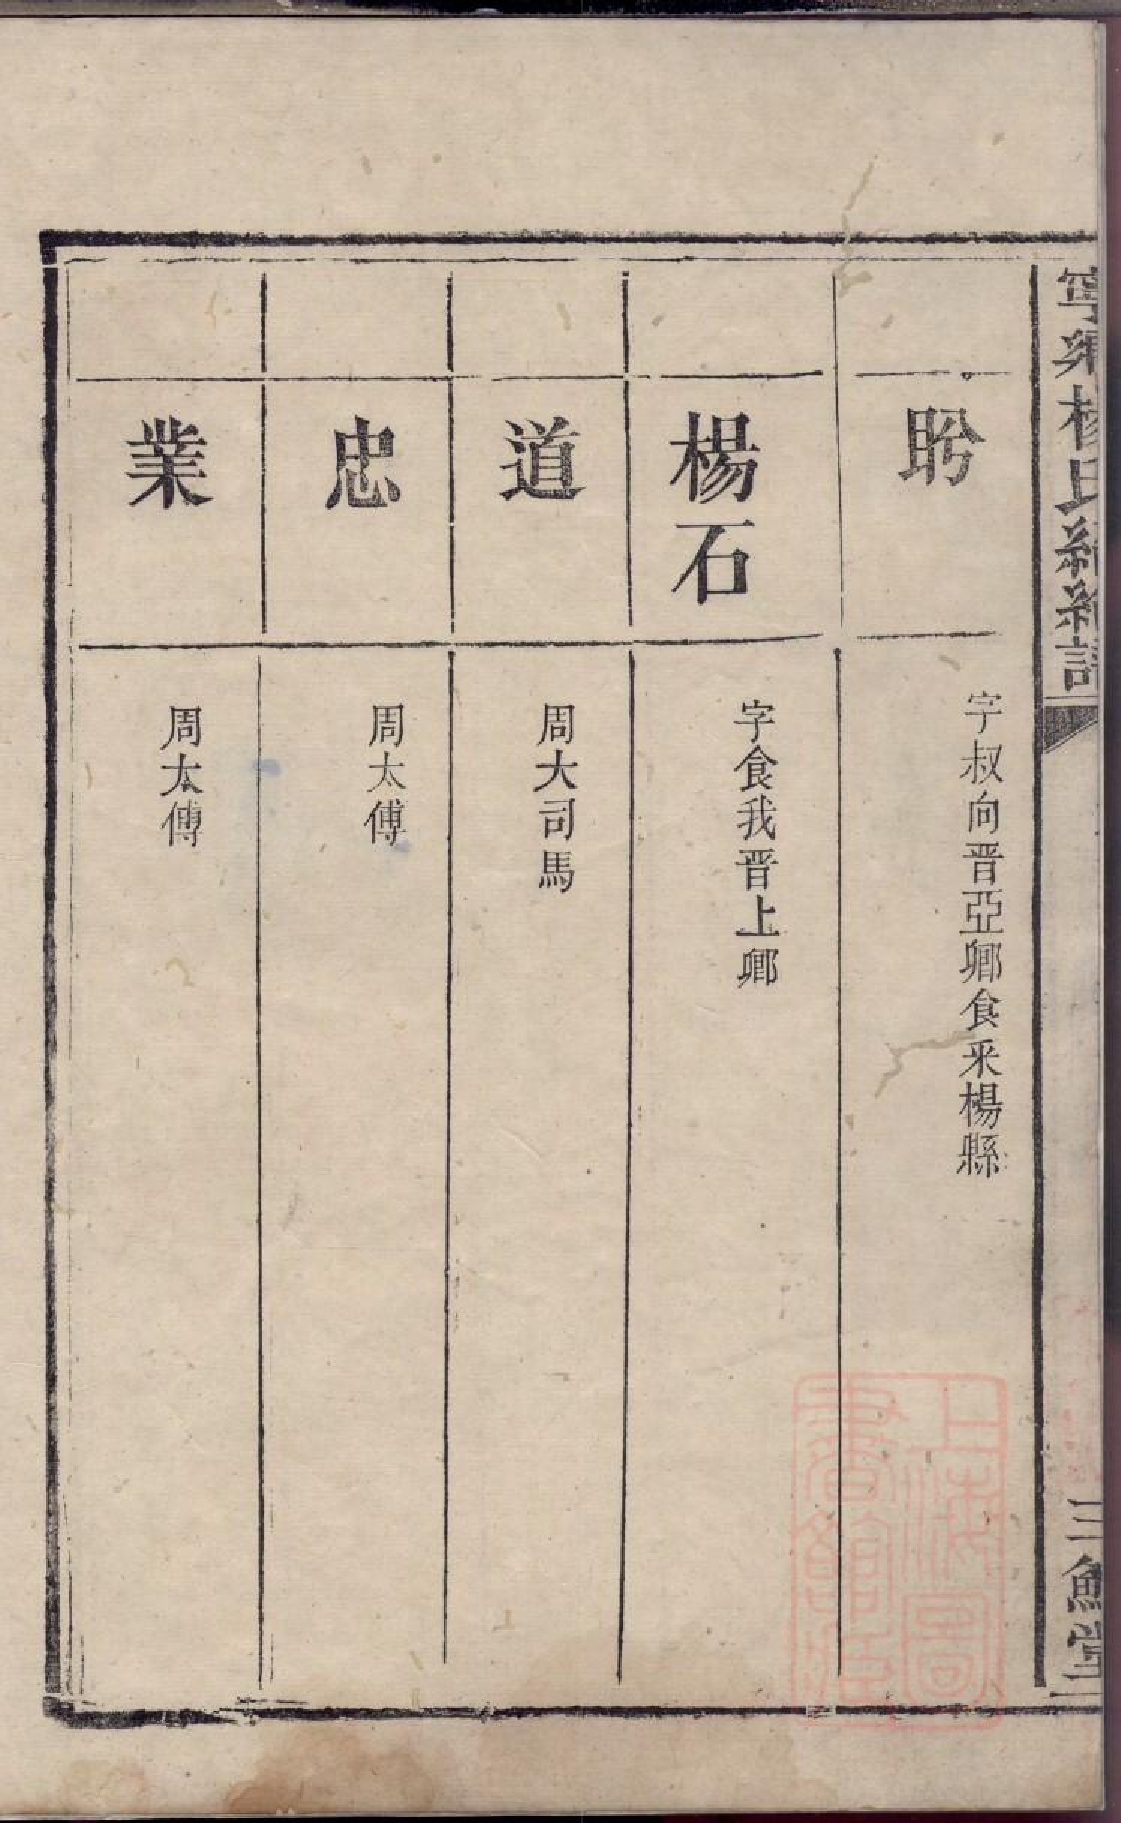 寧鄉楊氏續編譜
三鱣堂
肸
字叔向晋亞卿食采楊縣
楊石
字食我晋上卿
道
周大司馬
忠
周太傅
業
周太傅
上海圖
書館藏